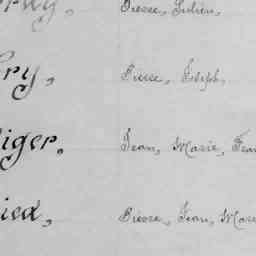 Pierre, Julien,
ry, Pierre, Joseph,
iger, Jean, Marie, Fran
ied, Pierre, Jean, Mari